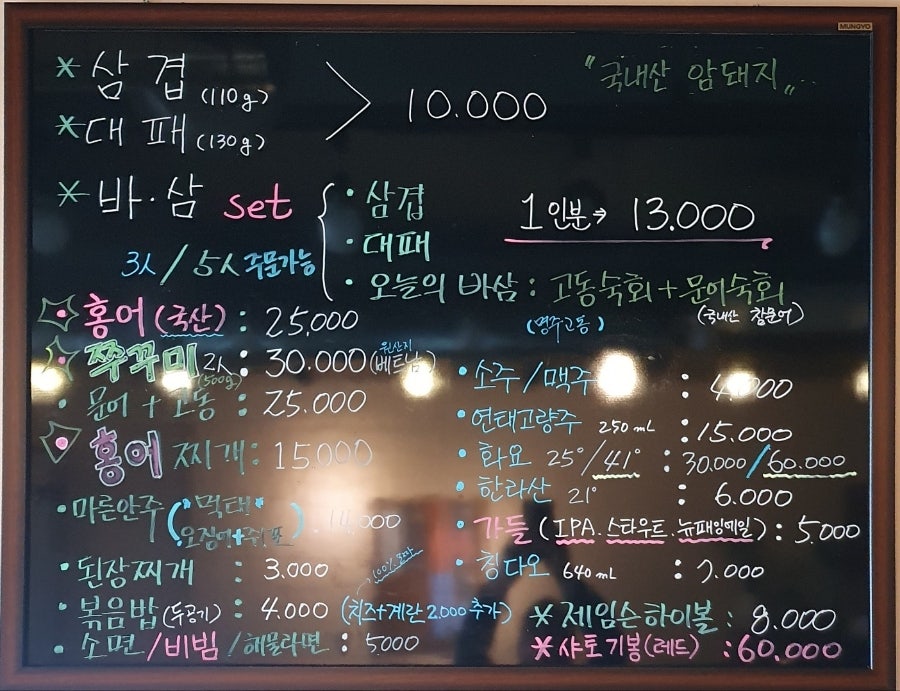 MUNGYO
* 삼겹 (110g)
* 대패 (130g)
> 10.000
"국내산 암돼지"
* 바·삼 set { · 삼겹
· 대패
· 오늘의 바삼 : 고동숙회 + 문어숙회
1인분 → 13.000
3人 / 5人 주문가능
(명주고동) (국내산 참문어)
홍어 (국산) : 25,000
쭈꾸미 2人 : 30.000 (원산지 베트남)
(500g)
· 문어 + 고동 : 25.000
홍어 찌개 : 15.000
· 마른안주 ( 먹태
오징어+쥐포 ) : 14,000
· 된장찌개 : 3.000
· 볶음밥 (두공기) : 4.000 (치즈+계란 2.000 추가)
· 소면 / 비빔 / 해물라면 : 5000
· 소주 / 맥주 : 4.000
· 연태고량주 250mL : 15.000
· 화요 25° / 41° : 30.000 / 60.000
· 한라산 21° : 6.000
· 가들 (IPA. 스타우트. 뉴패일에일) : 5,000
· 칭다오 640mL : 7.000
* 제임슨하이볼 : 8.000
* 샤토기봉(레드) : 60,000